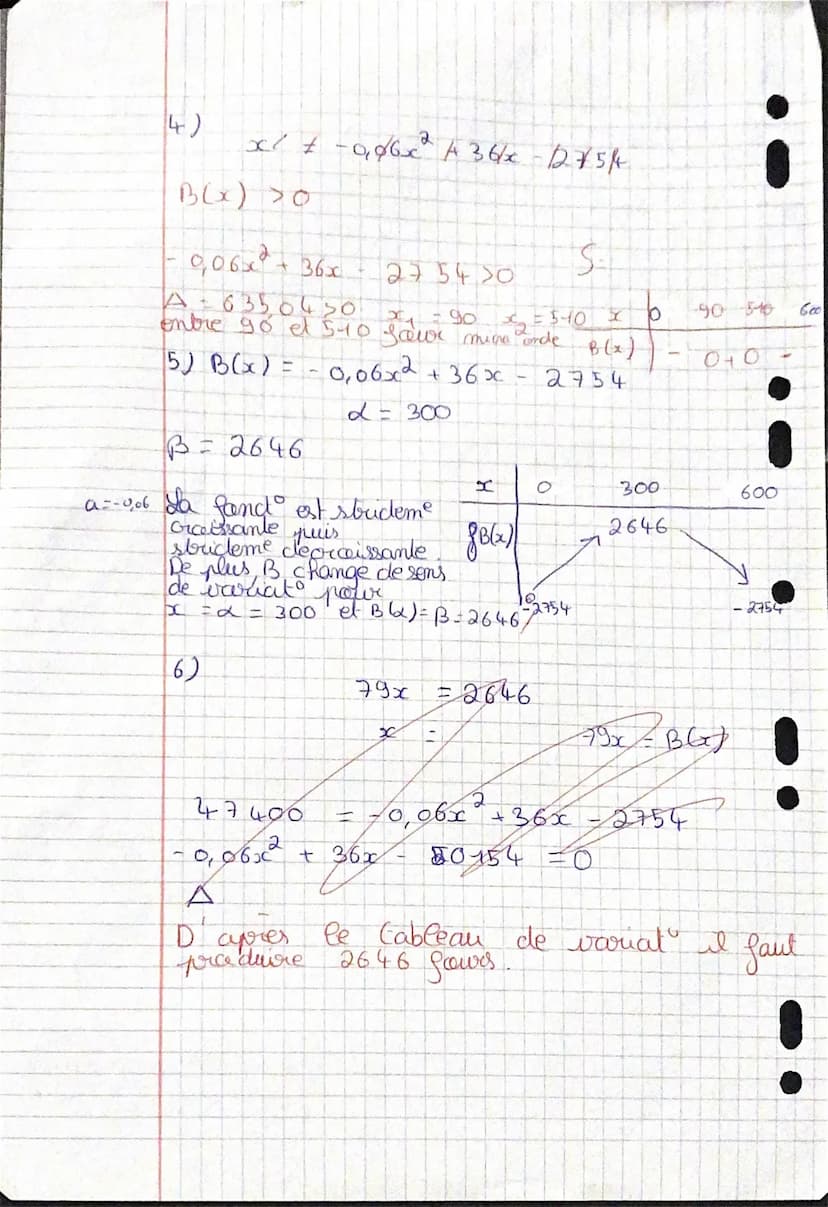 4)
x' ≠ -0,06x² + 36x - 2754
B(x) > 0
- 0,06x² + 36x - 2754 > 0 S=
Δ = 635,04 > 0 x₁ = 90 x₂ = 510 x 0 90 510 600
entre 90 et 510 fours micro onde B(x) - 0 + 0 -
5) B(x) = - 0,06x² + 36x - 2754
α = 300
β = 2646
x 0 300 600
a = -0,06 La fonct° est strictemᵉ
croissante puis
strictemᵉ décroissante.
De plus, B change de sens
de variat° pour
x = α = 300 et B(α) = β = 2646
B(x) 2646
-2754 -2754
6)
79x = 2646
x =
79x = B(x)
47400 = -0,06x² + 36x - 2754
- 0,06x² + 36x - 50154 = 0
Δ
D'après le tableau de variat° il faut
produire 2646 fours.